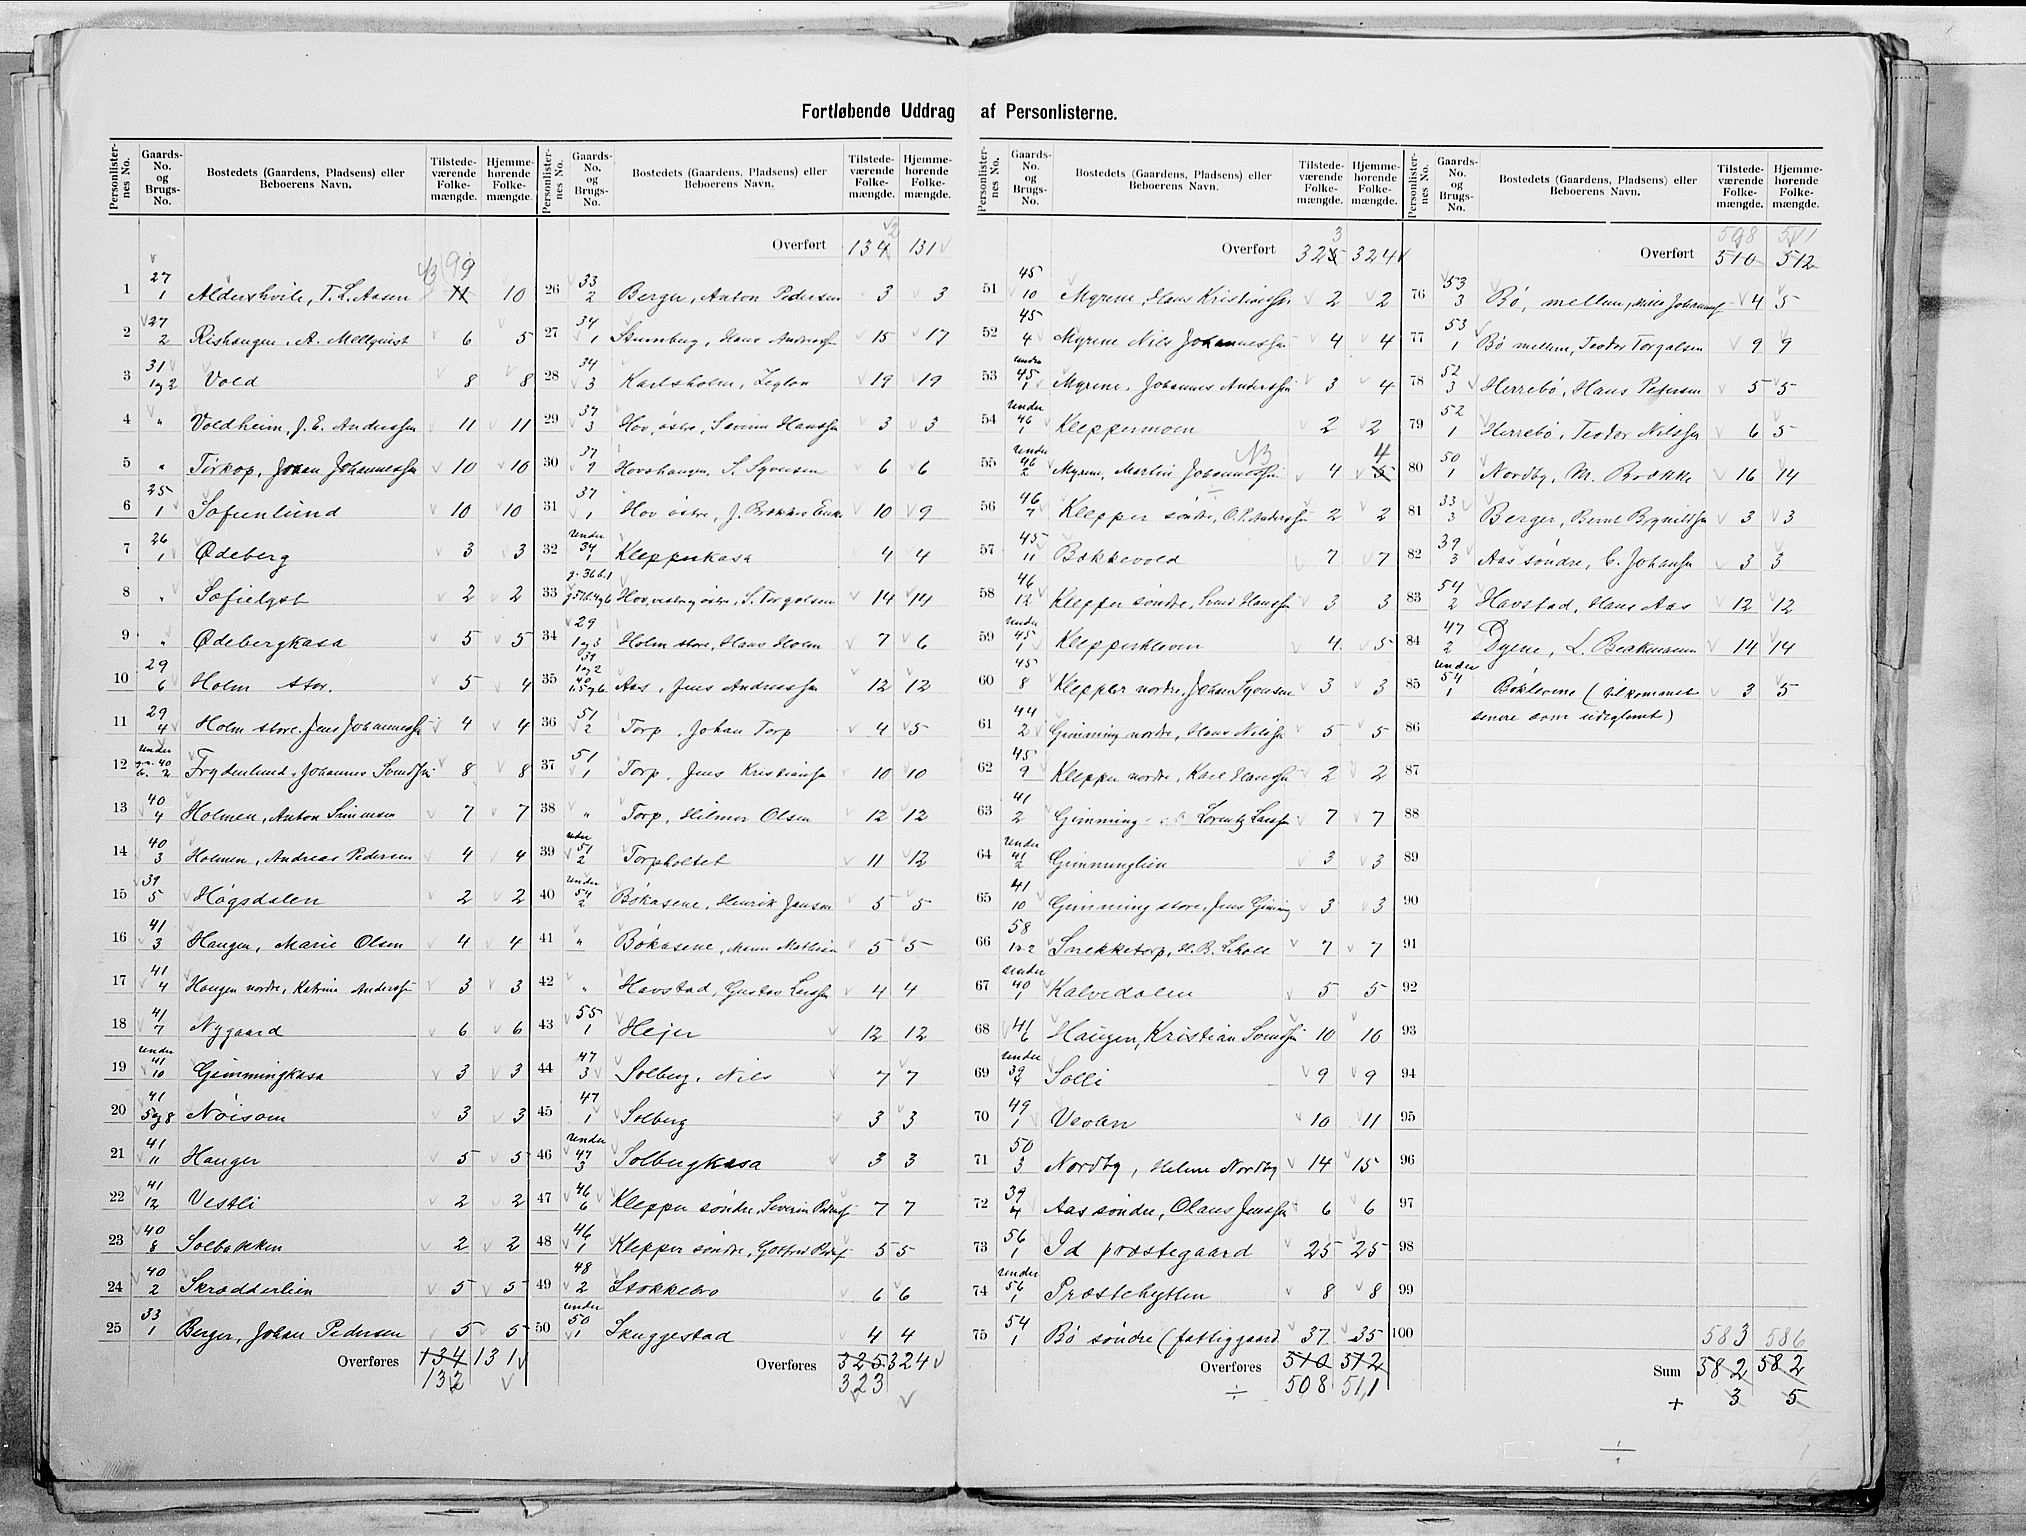 Fortløbende Uddrag af Personlisterne.
Personlister-nes No. Gaards-No. og Brugs-No. Bostedets (Gaardens, Pladsens) eller Beboerens Navn. Tilstede-værende Folke-mængde. Hjemme-hørende Folke-mængde.
99
1 27 1 Aldershvile, T. L. Aasen 11 10
2 27 2 Rishaugen, A. Mellquist 6 5
3 31 1 og 2 Vold 8 8
4 " Voldheim, J. E. Anderssen 11 11
5 " Torkop, Johan Johannessen 10 10
6 25 1 Sofienlund 10 10
7 26 1 Ødeberg 3 3
8 " Sofielyst 2 2
9 " Ødebergkasa 5 5
10 29 6 Holm stor. 5 4
11 29 4 Holm store, Jens Johannessen 4 4
12 under gn. 40 b. 2 Frydenlund, Johannes Svendsen 8 8
13 40 4 Holmen, Anton Simensen 7 7
14 40 3 Holmen, Andreas Pedersen 4 4
15 39 5 Høgsdalen 2 2
16 41 3 Haugen, Marie Olsen 4 4
17 41 4 Haugen nordre, Katrine Anderssen 3 3
18 41 7 Nygaard 6 6
19 under 41 10 Gimmingkasa 3 3
20 41 5 og 8 Nøisom 3 3
21 41 11 Hauger 5 5
22 41 12 Vestli 2 2
23 40 8 Solbakken 2 2
24 40 2 Skrædderlien 5 5
25 33 1 Berger, Johan Pedersen 5 5
Overføres 134 131
132
Personlister-nes No. Gaards-No. og Brugs-No. Bostedets (Gaardens, Pladsens) eller Beboerens Navn. Tilstede-værende Folke-mængde. Hjemme-hørende Folke-mængde.
2
Overført 134 131
26 33 2 Berger, Anton Pedersen 3 3
27 34 1 Stumberg, Hans Anderssen 15 17
28 34 3 Karlsholm, Teglen 19 19
29 37 3 Hov, østre, Severin Hanssen 3 3
30 37 7 Hovshaugen, S. Syvensen 6 6
31 37 1 Hov østre, J. Brække Enke 10 9
32 under 34 1 Klepperkasa 4 4
33 g. 36 b. 1 Hov, vestre og østre, S. Torgalsen 14 14
34 29 1 og 3 Holm store, Hans Holm 7 6
35 39 1 og 2 40 Aas, Jens Andreassen 12 12
36 51 2 Torp, Johan Torp 4 5
37 51 1 Torp, Jens Kristiansen 10 10
38 " Torp, Hilmar Olsen 12 12
39 under 51 2 Torpholtet 11 12
40 under 54 2 Bøkasene, Henrik Jansen 5 5
41 " Bøkasene, Maren Mathea 5 5
42 " Havstad, Gustav Larssen 4 4
43 55 1 Hejer 12 12
44 47 3 Solberg, Nils 7 7
45 47 1 Solberg 3 3
46 under 47 3 Solbergkasa 3 3
47 46 6 Klepper søndre, Severin Pedersen 7 7
48 46 1 Klepper søndre, Gotfred 5 5
49 48 2 Stokkebro 6 6
50 under 50 1 Skuggestad 4 4
Overføres 325 324
323
Personlister-nes No. Gaards-No. og Brugs-No. Bostedets (Gaardens, Pladsens) eller Beboerens Navn. Tilstede-værende Folke-mængde. Hjemme-hørende Folke-mængde.
3
Overført 325 324
51 45 10 Myrene, Hans Kristiansen 2 2
52 45 4 Myrene Nils Johannessen 4 4
53 under 45 1 Myrene, Johannes Anderssen 3 4
54 under 46 1 Kleppermoen 2 2
NB 4
55 under 46 2 Myrene, Martin Johannessen 4 5
56 46 7 Klepper søndre, O. P. Anderssen 2 2
57 45 11 Bækkevold 7 7
58 46 12 Klepper søndre, Svend Hanssen 3 3
59 under 45 1 Klepperkleven 4 5
60 45 8 Klepper nordre, Johan Syvensen 3 3
61 44 2 Gimming nordre, Hans Nilssen 5 5
62 45 9 Klepper nordre, Karl Hanssen 2 2
63 41 2 Gimming Lorentz Larssen 7 7
64 under 41 2 Gimminglien 3 3
65 41 10 Gimming store, Jens Gimming 3 3
66 58 1 o 2 Snekketorp, H. B. 7 7
67 under 40 1 Kalvedalen 5 5
68 41 6 Haugen, Kristian Svendsen 10 10
69 under 39 4 Solli 9 9
70 49 1 Veden 10 11
71 50 3 Nordby, Helene Nordby 14 15
72 39 4 Aas søndre, Olaus Jenssen 6 6
73 56 1 Id præstegaard 25 25
74 under 56 1 Præstehytten 8 8
75 54 1 Bø søndre (fattiggaard 37 35
Overføres 510 512
÷ 508 511
Personlister-nes No. Gaards-No. og Brugs-No. Bostedets (Gaardens, Pladsens) eller Beboerens Navn. Tilstede-værende Folke-mængde. Hjemme-hørende Folke-mængde.
508 511
Overført 510 512
76 53 3 Bø, mellem, Nils Johannes 4 5
77 53 1 Bø mellem, Teodor Torgalsen 9 9
78 52 3 Herrebø, Hans Petersen 5 5
79 52 1 Herrebø, Teodor Nilssen 6 5
80 50 1 Nordby, M. Brække 16 14
81 33 3 Berger, Bernt Brynildsen 3 3
82 39 3 Aas søndre, C. Johansen 3 3
83 54 2 Havstad, Hans Aas 12 12
84 47 2 Dyene, L. Beckmann 14 14
85 under 54 1 Bøklevene (tilkommet 3 5
86 senere som udeglemt)
87
88
89
90
91
92
93
94
95
96
97
98
99
100
583 586
Sum 582 582
+ 3 5
÷ 1